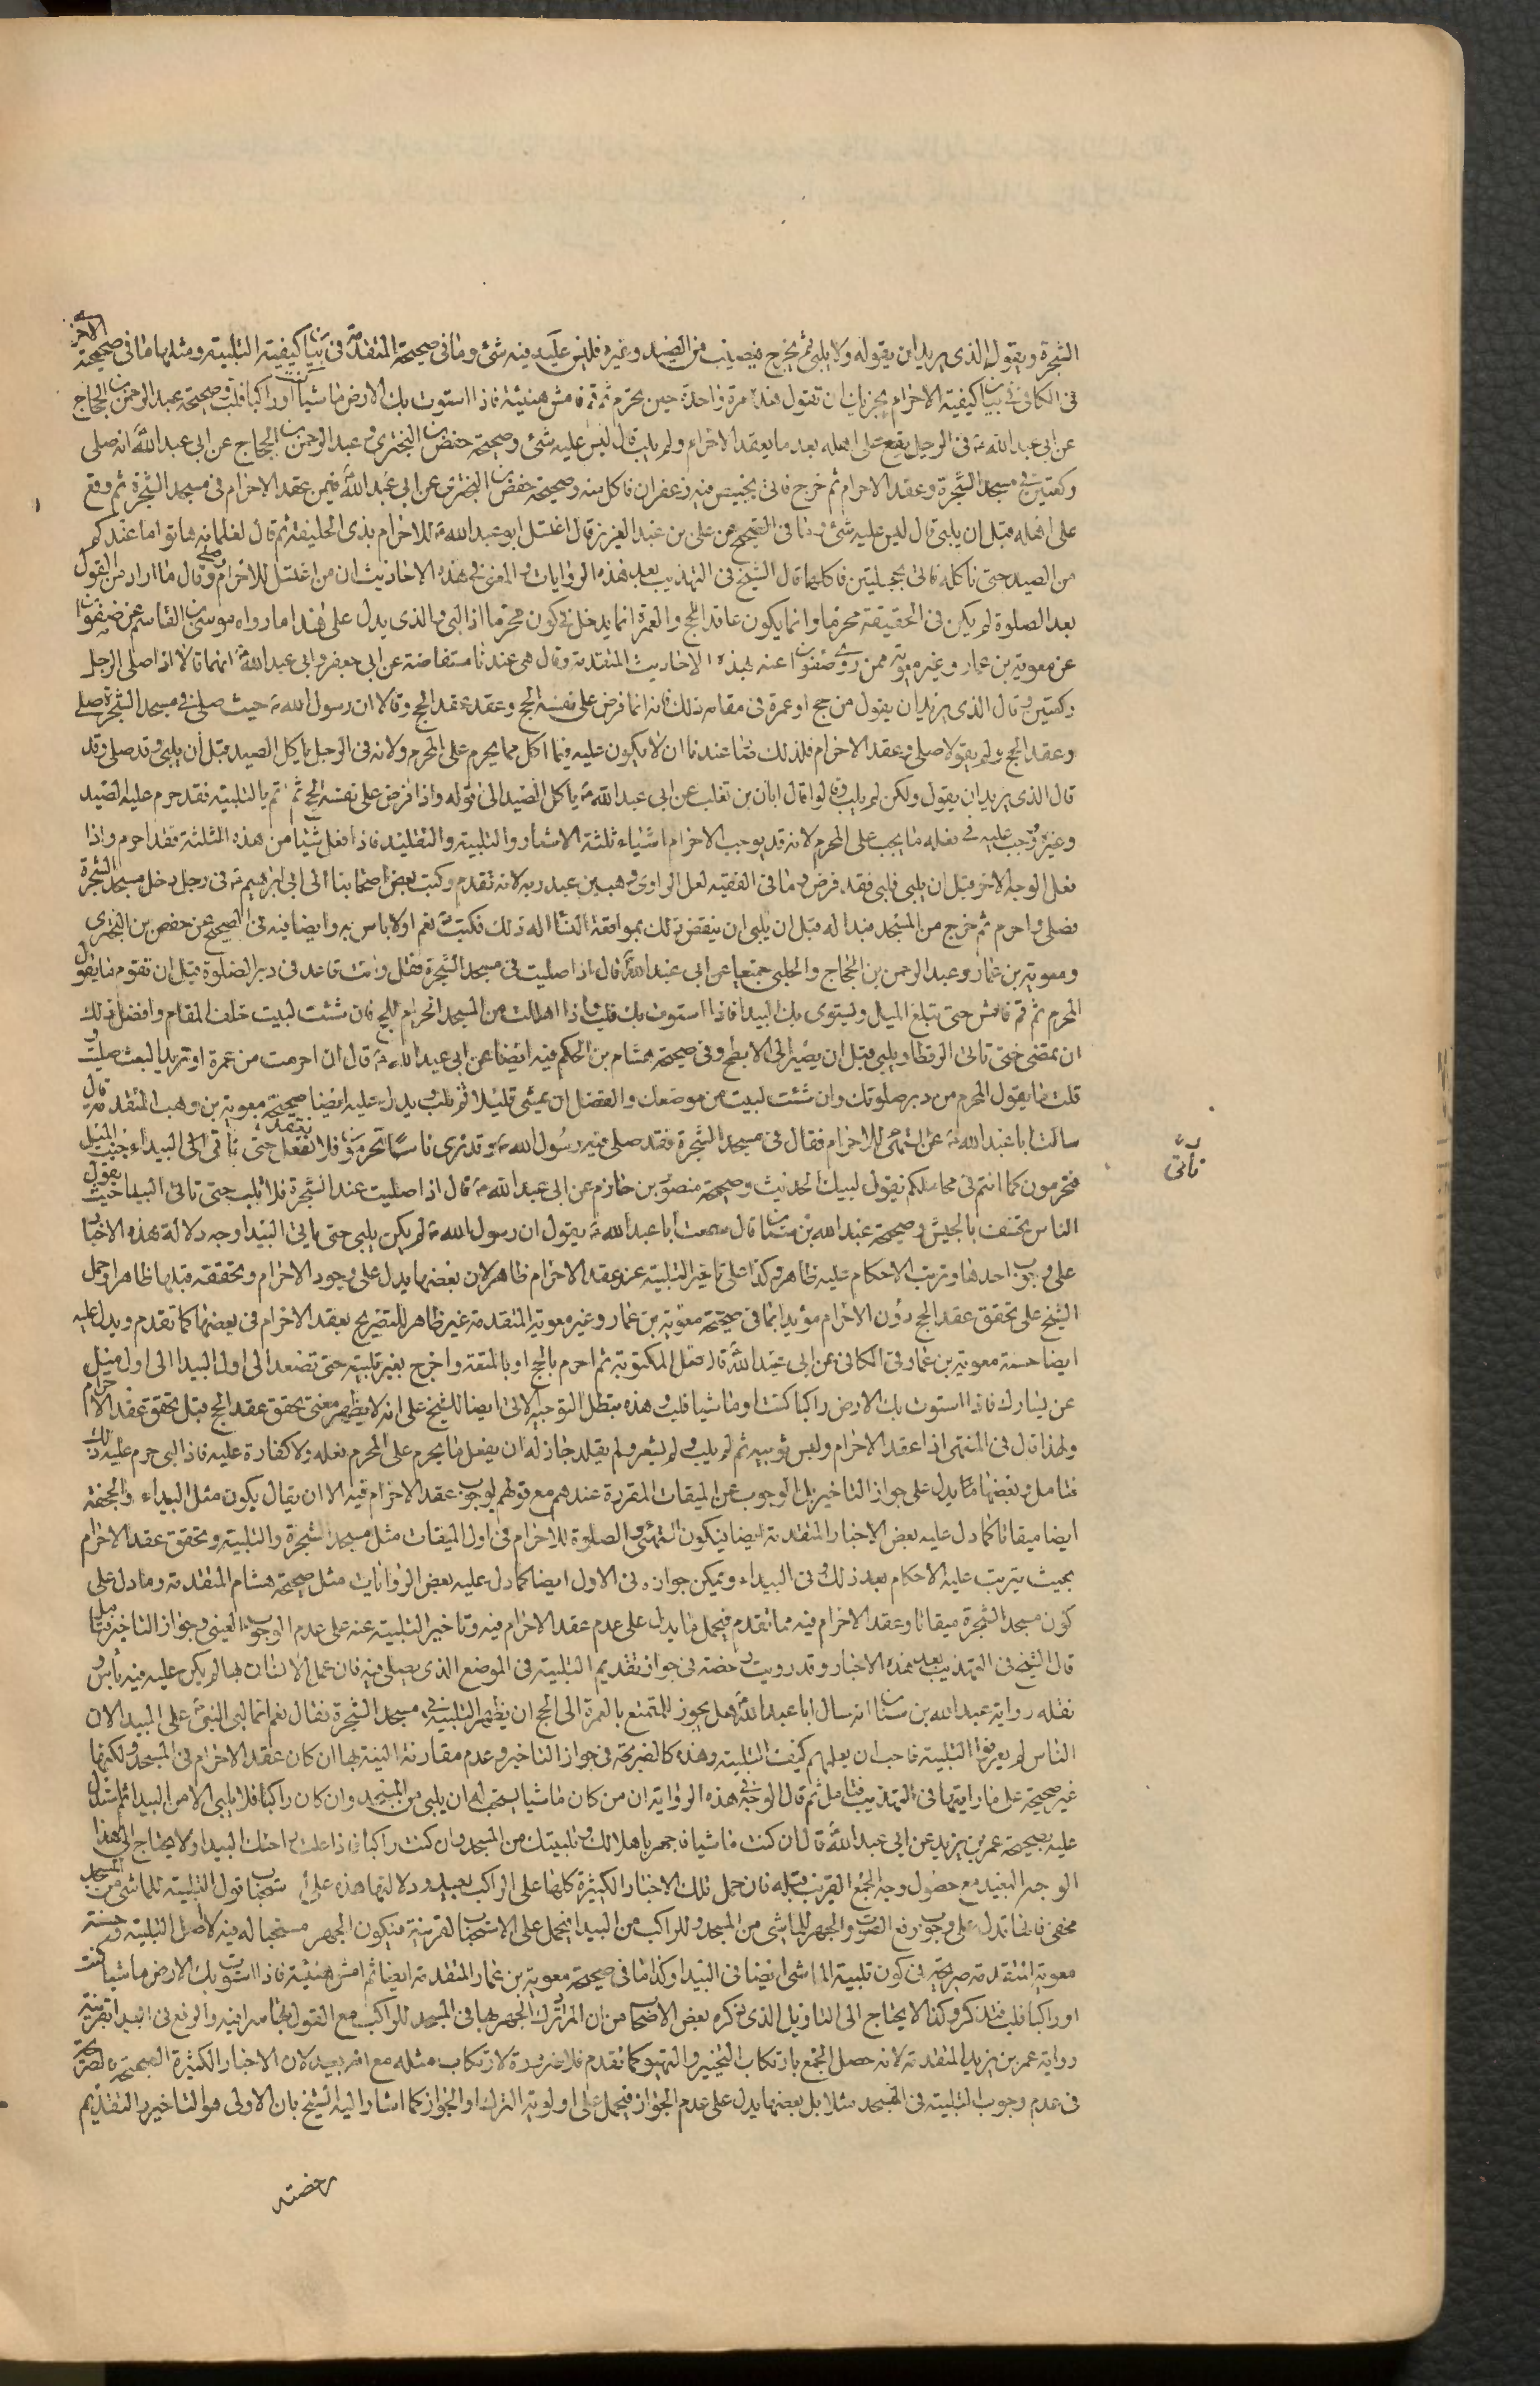 الشجرة ويقول الذى يريد ان يقوله ولا يلبى ثم يخرج فيصيب من الصيد وغيره فليس عليه فيه شئ وما فى صحيحة المتقدمة فى بيان كيفية التلبية ومثلها ما فى صحيحة الاخرى
فى الكافى فى بيان كيفية الاحرام يجزيك ان تقول هذا مرة واحدة حين تحرم ثم قم فامش هنيئة فاذا استوت بك الارض ماشيا كنت او راكبا فلب وصحيحة عبد الرحمن بن الحجاج
عن ابى عبد الله ع فى الرجل يقع على اهله بعد ما يعقد الاحرام ولم يلب قال ليس عليه شئ وصحيحة حفص بن البخترى وعبد الرحمن بن الحجاج عن ابى عبد الله ع انه صلى
ركعتين فى مسجد الشجرة وعقد الاحرام ثم خرج فاتى بخبيص فيه زعفران فاكل منه وصحيحة حفص بن البخترى عن ابى عبد الله ع فيمن عقد الاحرام فى مسجد الشجرة ثم وقع
على اهله قبل ان يلبى قال ليس عليه شئ وما فى الصحيح عن على بن عبد العزيز قال اغتسل ابو عبد الله ع للاحرام بذى الحليفة ثم قال لغلمانه هاتوا ما عندكم
من الصيد حتى ناكله فاتى بحجلتين فاكلهما قال الشيخ فى التهذيب بعد هذه الروايات والمعنى فى هذه الاحاديث ان من اغتسل للاحرام وصلى وقال ما اراد من القول
بعد الصلوة لم يكن فى الحقيقة محرما وانما يكون عاقدا للحج والعمرة انما يدخل فى كونه محرما اذا لبى والذى يدل على هذا ما رواه موسى بن القاسم عن صفوان
عن معوية بن عمار وغير معوية ممن روى صفوان عنه هذه الاحاديث المتقدمة وقال هى عندنا مستفاضة عن ابى جعفر وابى عبد الله ع انهما قالا اذا صلى الرجل
ركعتين وقال الذى يريد ان يقول من حج او عمرة فى مقامه ذلك فانه انما فرض على نفسه الحج وعقد عقد الحج وقالا ان رسول الله ص حيث صلى فى مسجد الشجرة صلى
وعقد الحج ولم يقولا صلى وعقد الاحرام فلذلك صار عندنا ان لا يكون عليه فيما اكل مما يحرم على المحرم ولانه فى الرجل ياكل الصيد قبل أن يلبى وقد صلى وقد
قال الذى يريد ان يقول ولكن لم يلب وقالوا قال ابان بن تغلب عن ابى عبد الله ع ياكل الصيد الى قوله واذا فرض على نفسه الحج ثم اتم بالتلبية فقد حرم عليه الصيد
وغيره ووجب عليه فى فعله ما يجب على المحرم لانه قد يوجب الاحرام اشياء ثلثة الاشعار والتلبية والتقليد فاذا فعل شيئا من هذه الثلثة فقد احرم واذا
فعل الوجه الاخر قبل ان يلبى فلبى فقد فرض وما فى الفقيه لعل الراوى وهب بن عبد ربه لانه تقدم وكتب بعض اصحابنا الى ابى ابرهيم ع فى رجل دخل مسجد الشجرة
فصلى واحرم ثم خرج من المسجد فبدا له قبل ان يلبى ان ينقض ذلك بمواقعة النساء اله ذلك فكتب ع نعم اولا باس به وايضا فيه فى الصحيح عن حفص بن البخترى
ومعوية بن عمار وعبد الرحمن بن الحجاج والحلبى جميعا عن ابى عبد الله ع قال اذا صليت فى مسجد الشجرة فقل وانت قاعد فى دبر الصلوة قبل ان تقوم ما يقول
المحرم ثم قم فامش حتى تبلغ الميل وتستوى بك البيدا فاذا استوت بك فلب واذا اهللت من المسجد الحرام للحج فان شئت لبيت خلف المقام وافضل ذلك
ان تمضى حتى تاتى الرقطا وتلبى قبل ان يصير الى الابطح وفى صحيحة هشام بن الحكم فيه ايضا عن ابى عبد الله ع قال ان احرمت من عمرة او تريد البعث صليت و
قلت ما يقول المحرم من دبر صلوتك وان شئت لبيت من موضعك والفضل ان تمشى قليلا ثم تلب ويدل عليه ايضا صحيحة معوية بن وهب المتقدمة قال
سالت ابا عبد الله ع عن التهيئ للاحرام فقال فى مسجد الشجرة فقد صلى فيه رسول الله ص وقد ترى ناسا تحرمون فلا تفعل حتى تاتى الى البيداء حيث الميل
فتحرمون كما انتم فى محاملكم تقول لبيك الحديث وصحيحة منصور بن حازم عن ابى عبد الله ع قال اذا صليت عند الشجرة فلا تلب حتى تاتى البيدا حيث يقول
الناس يخسف بالجيش وصحيحة عبد الله بن سنان قال سمعت ابا عبد الله ع يقول ان رسول الله ص لم يكن يلبى حتى ياتى البيدا وجه دلالة هذه الاخبار
على وجوب احدها وترتب الاحكام عليه ظاهرة وكذا على تاخير التلبية عن عقد الاحرام ظاهر لان بعضها يدل على وجود الاحرام وتحققه قبلها ظاهرا وحمل
الشيخ على تحقق عقد الحج دون الاحرام مؤيدا بما فى صحيحة معوية بن عمار وغير معوية المتقدمة غير ظاهر للتصريح بعقد الاحرام فى بعضها كما تقدم ويدل عليه
ايضا حسنة معوية بن عمار فى الكافى عن ابى عبد الله ع قال صل المكتوبة ثم احرم بالحج او بالمتعة واخرج بغير تلبية حتى تصعد الى اول البيدا الى اول ميل
عن يسارك فاذا استوت بك الارض راكبا كنت او ماشيا فلب وهذه تبطل التوجيه الاتى ايضا للشيخ على انه لا يظهر معنى تحقق عقد الحج قبل تحقق عقد الاحرام
ولهذا قال فى المنتهى اذا عقد الاحرام ولبس ثوبيه ثم لم يلب ولم يشعر ولم يقلد جاز له ان يفعل ما يحرم على المحرم فعله ولا كفارة عليه فاذا لبى حرم عليه ذلك
فتامل وبعضها مما يدل على جواز التاخير بل الوجوب عن الميقات المقررة عندهم مع قولهم بوجوب عقد الاحرام فيه الا ان يقال يكون مثل البيداء والجحفة
ايضا ميقاتا كما دل عليه بعض الاخبار المتقدمة ايضا فيكون التهيئ والصلوة للاحرام فى اول الميقات مثل مسجد الشجرة والتلبية وتحقق عقد الاحرام
بحيث يترتب عليه الاحكام بعد ذلك وفى البيداء ويمكن جوازه فى الاول ايضا كما دل عليه بعض الروايات مثل صحيحة هشام المتقدمة وما دل على
كون مسجد الشجرة ميقاتا وعقد الاحرام فيه مما تقدم فيحمل ما يدل على عدم عقد الاحرام فيه وتاخير التلبية عنه على عدم الوجوب العينى وجواز التاخير فتامل
قال الشيخ فى التهذيب بعد هذه الاخبار وقد رويت رخصة فى جواز تقديم التلبية فى الموضع الذى يصلى فيه فان عمل الانسان بها لم يكن عليه فيه بأس و
نقله رواية عبد الله بن سنان انه سال ابا عبد الله ع هل يجوز للمتمتع بالعمرة الى الحج ان يظهر التلبية فى مسجد الشجرة فقال نعم انما لبى النبى ص على البيدا لان
الناس لم يعرفوا التلبية فاحب ان يعلمهم كيف التلبية وهذه كالصريحة فى جواز التاخير وعدم مقارنة النية بها ان كان عقد الاحرام فى المسجد ولكنها
غير صحيحة على ما رايتها فى التهذيب فتامل ثم قال الوجه فى هذه الرواية ان من كان ماشيا يستحب له ان يلبى من المسجد وان كان راكبا فلا يلبى الا من البيدا ثم استدل
عليه بصحيحة عمر بن يزيد عن ابى عبد الله ع قال ان كنت ماشيا فاجهر باهلالك وتلبيتك من المسجد وان كنت راكبا فاذا علت بك راحلتك البيدا ولا يحتاج الى هذا
الوجه البعيد مع حصول وجه الجمع القريب قبله فان حمل تلك الاخبار الكثيرة كلها على الراكب بعيد ودلالتها هذه على استحباب قول التلبية للماشى من المسجد
مخفى فانها تدل على وجوب رفع الصوت والجهر للماشى من المسجد وللراكب من البيدا فيحمل على الاستحباب لقرينة فيكون الجهر مستحبا له فيه لا اصل التلبية وحسنة
معوية المتقدمة صريحة فى كون تلبية الماشى ايضا فى البيدا وكذا ما فى صحيحة معوية بن عمار المتقدمة ايضا ثم امش هنيئة فاذا استوت بك الارض ماشيا كنت
او راكبا فلب فتذكر وكذا لا يحتاج الى التاويل الذى ذكره بعض الاصحاب من ان المراد ترك الجهر بها فى المسجد للراكب مع القول بها سرا فيه والرفع فى البيدا بقرينة
رواية عمر بن يزيد المتقدمة لانه حصل الجمع بارتكاب التخيير والتهيؤ كما تقدم فلا ضرورة لارتكاب مثله مع انه بعيد لان الاخبار الكثيرة الصحيحة صريحة
فى عدم وجوب التلبية فى المسجد مثلا بل بعضها يدل على عدم الجواز فيحمل على اولوية الترك او الجواز كما اشار اليه الشيخ بان الاولى هو التاخير والتقديم
رخصته